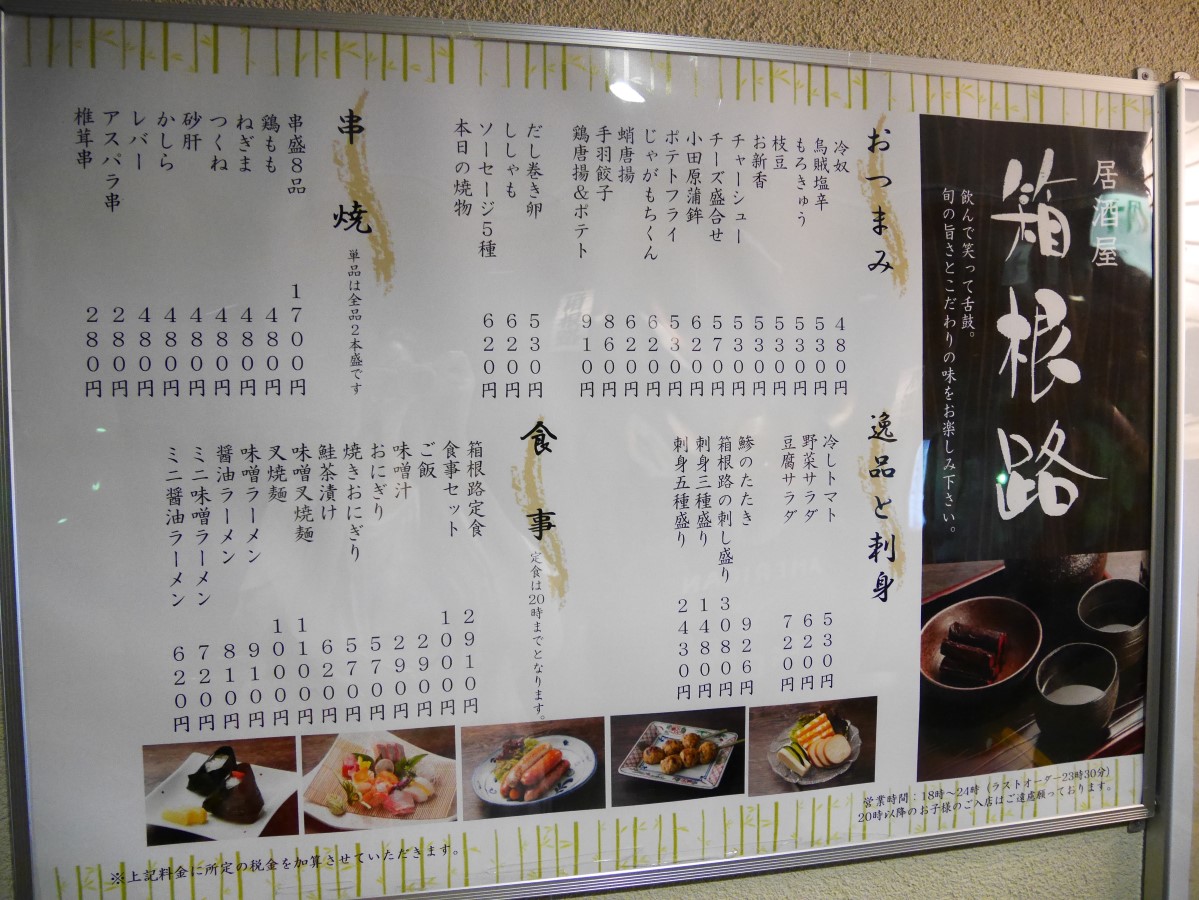 居酒屋
箱根路
飲んで笑って舌鼓。
旬の旨さとこだわりの味をお楽しみ下さい。
おつまみ
冷奴 480円
烏賊塩辛 530円
もろきゅう 530円
枝豆 530円
お新香 530円
チャーシュー 530円
チーズ盛合せ 570円
小田原蒲鉾 620円
ポテトフライ 530円
じゃがもちくん 620円
蛸唐揚 620円
手羽餃子 860円
鶏唐揚&ポテト 910円
だし巻き卵 530円
ししゃも 620円
ソーセージ5種 620円
本日の焼物
串焼 単品は全品2本盛です
串盛8品 1700円
鶏もも 480円
ねぎま 480円
つくね 480円
砂肝 480円
かしら 480円
レバー 480円
アスパラ串 280円
椎茸串 280円
逸品と刺身
冷しトマト 530円
野菜サラダ 620円
豆腐サラダ 720円
鯵のたたき 926円
箱根路の刺し盛り 3080円
刺身三種盛り 1480円
刺身五種盛り 2430円
食事 定食は20時までとなります。
箱根路定食 2910円
食事セット 1000円
ご飯 290円
味噌汁 290円
おにぎり 570円
焼きおにぎり 570円
鮭茶漬け 620円
味噌叉焼麺 1100円
叉焼麺 1000円
味噌ラーメン 910円
醤油ラーメン 810円
ミニ味噌ラーメン 720円
ミニ醤油ラーメン 620円
営業時間:18時〜24時(ラストオーダー23時30分)
20時以降のお子様のご入店はご遠慮願っております。
※上記料金に所定の税金を加算させていただきます。